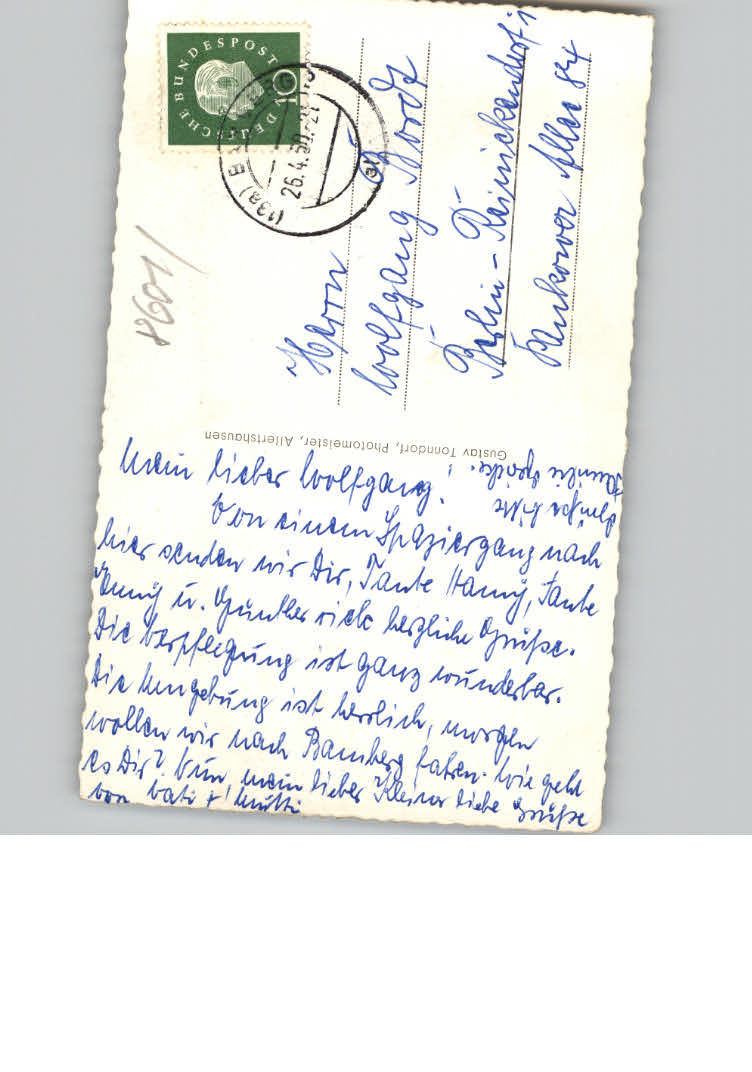 DEUTSCHE BUNDESPOST
10
(13a) BA
26.4.60.-21
8601/
Herrn
Wolfgang
Berlin-Reinickendorf 1
Pankower Allee 84
Gustav Tonndorf, Photomeister, Allertshausen
Mein lieber Wolfgang!
Von einem Spaziergang nach
hier senden wir Dir, Tante Hanny, Tante
Änny u. Günther viele herzliche Grüße.
Die Verpflegung ist ganz wunderbar.
Die Umgebung ist herrlich, morgen
wollen wir nach Bamberg fahren. Wie geht
es Dir? Nun mein lieber Kleiner liebe Grüße
von Vati + Mutti
Grüße bitte
Familie